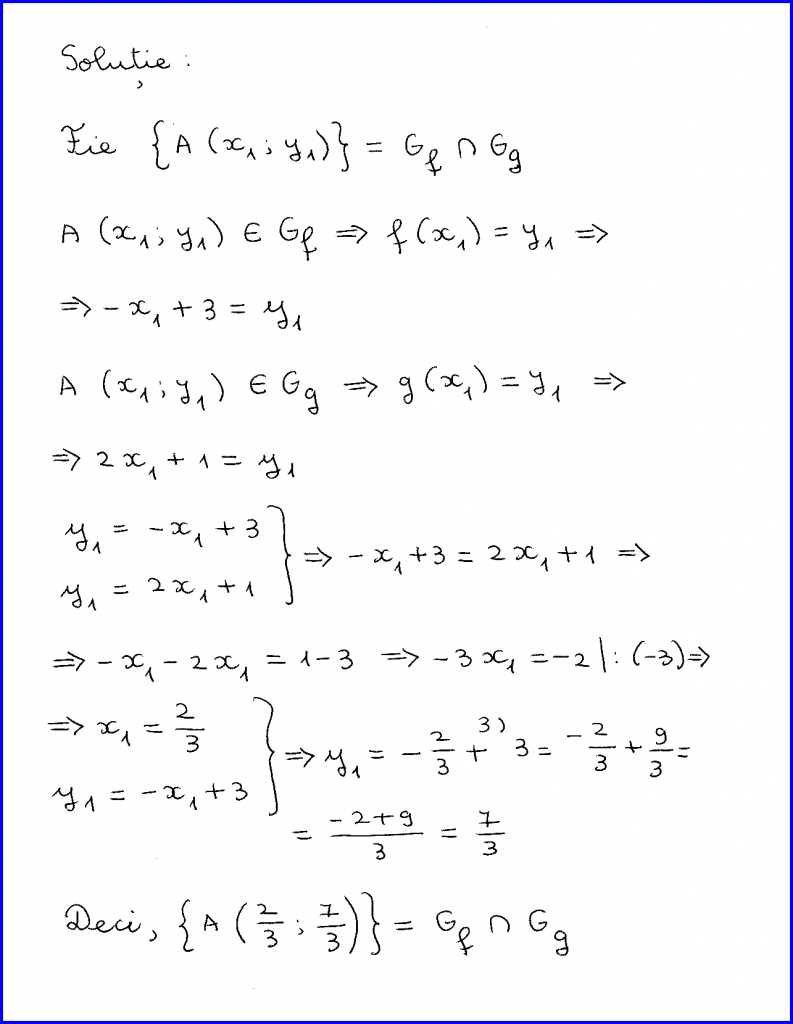 Soluție :
Fie {A (x₁ ; y₁)} = G_f ∩ G_g
A (x₁ ; y₁) ∈ G_f ⇒ f(x₁) = y₁ ⇒
⇒ -x₁ + 3 = y₁
A (x₁ ; y₁) ∈ G_g ⇒ g(x₁) = y₁ ⇒
⇒ 2x₁ + 1 = y₁
y₁ = -x₁ + 3
y₁ = 2x₁ + 1 } ⇒ -x₁ + 3 = 2x₁ + 1 ⇒
⇒ -x₁ - 2x₁ = 1 - 3 ⇒ -3x₁ = -2 | : (-3) ⇒
⇒ x₁ = 2/3
y₁ = -x₁ + 3 } ⇒ y₁ = - 2/3 + ³⁾3 = - 2/3 + 9/3 =
= (-2+9)/3 = 7/3
Deci, {A (2/3 ; 7/3)} = G_f ∩ G_g